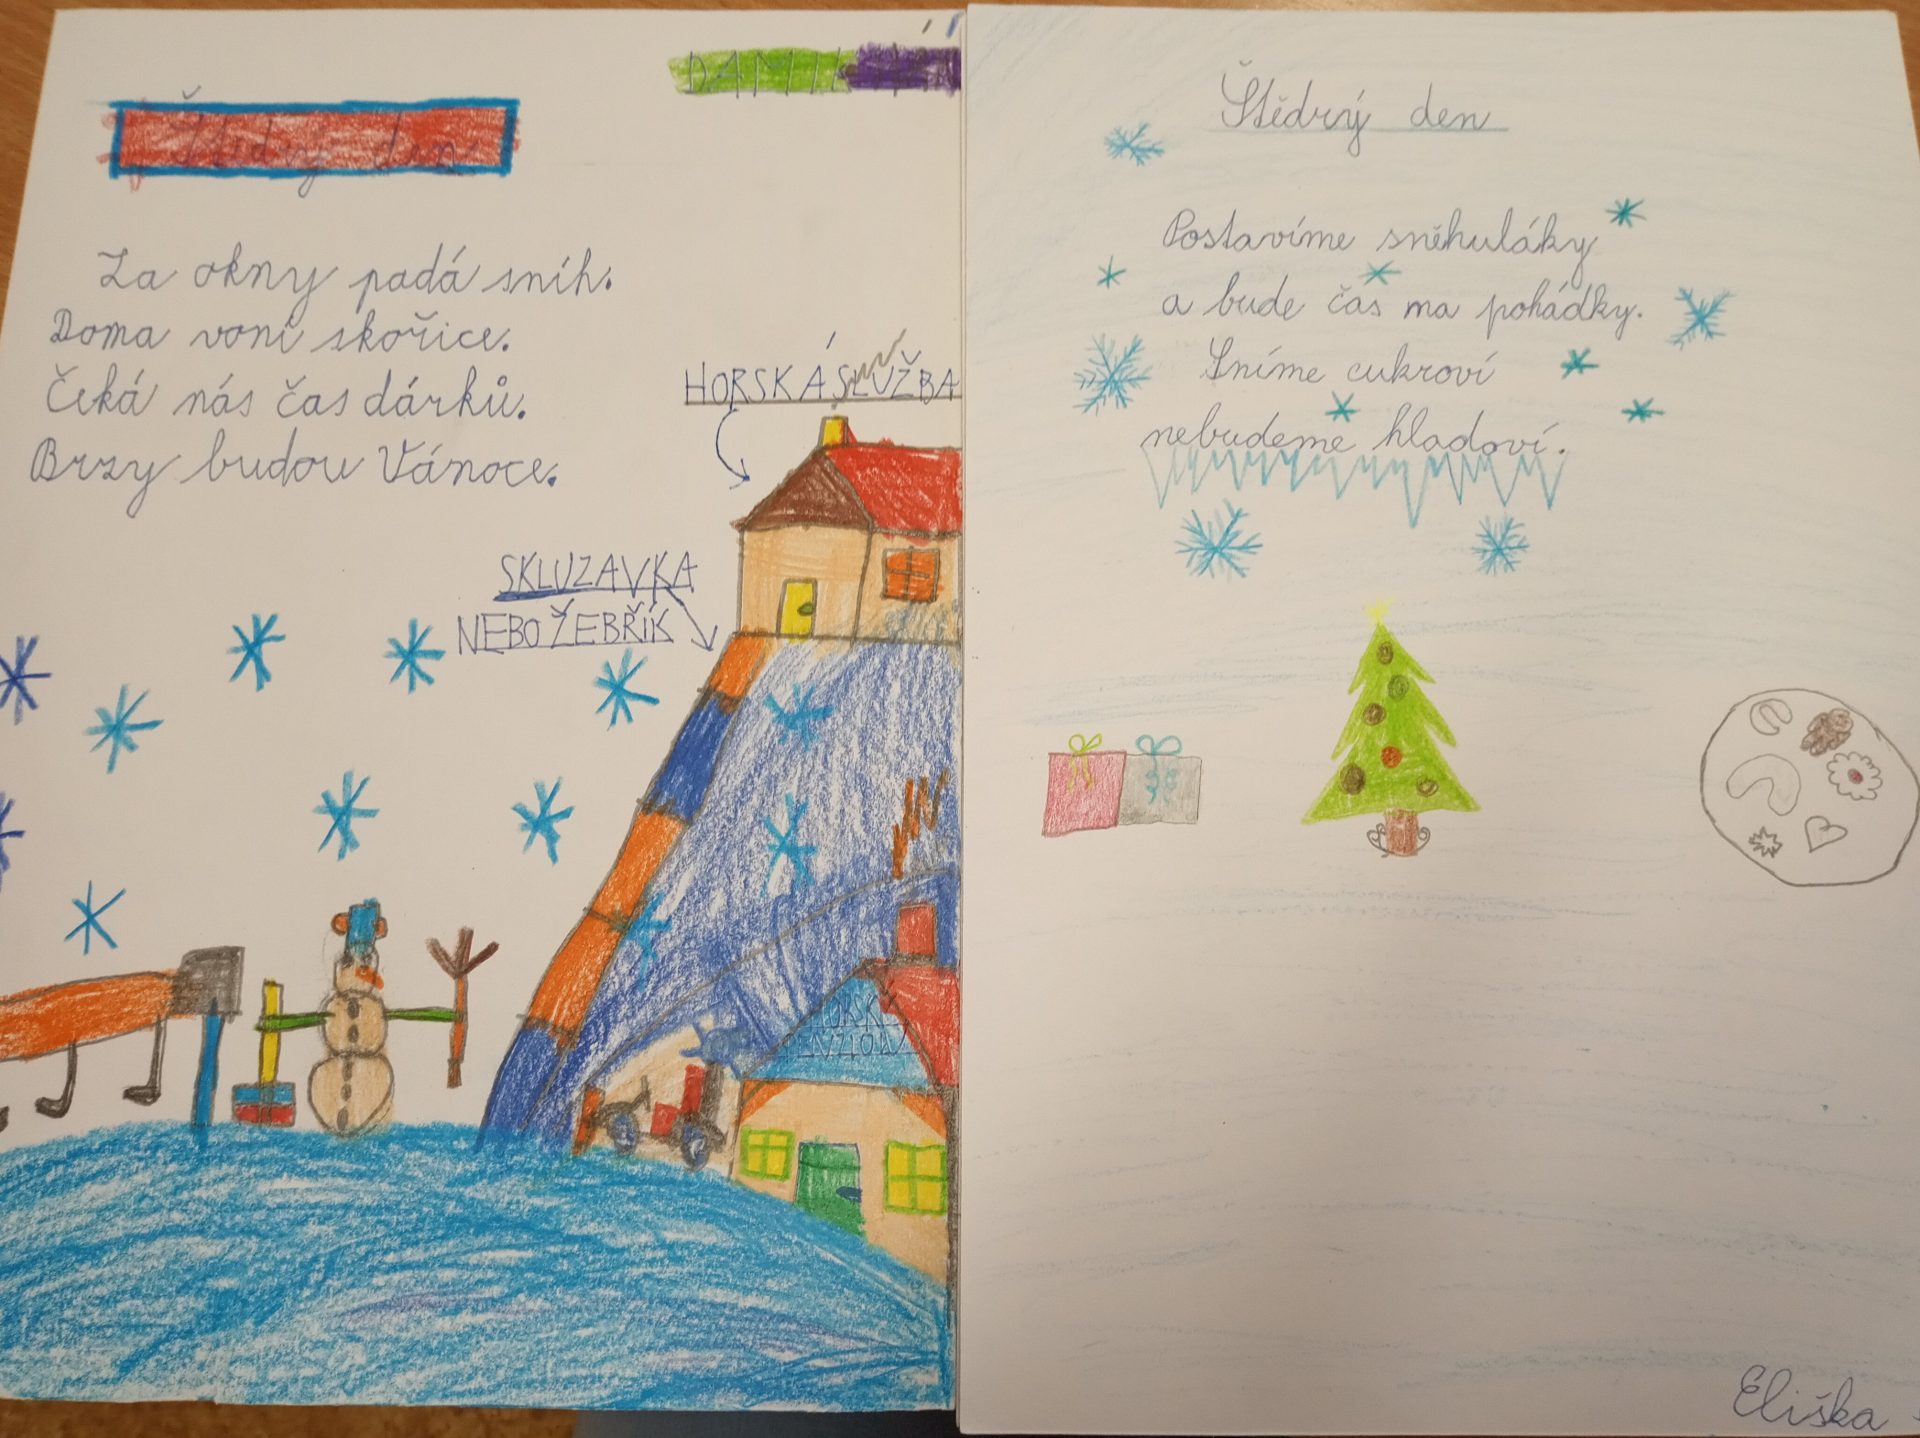 Štědrý den
Za okny padá sníh.
Doma voní skořice.
Čeká nás čas dárků.
Brzy budou Vánoce.
HORSKÁ SLUŽBA
SKLUZAVKA
NEBO ŽEBŘÍK
HORSKÝ
Štědrý den
Postavíme sněhuláky
a bude čas na pohádky.
Sníme cukroví
nebudeme hladoví.
Eliška